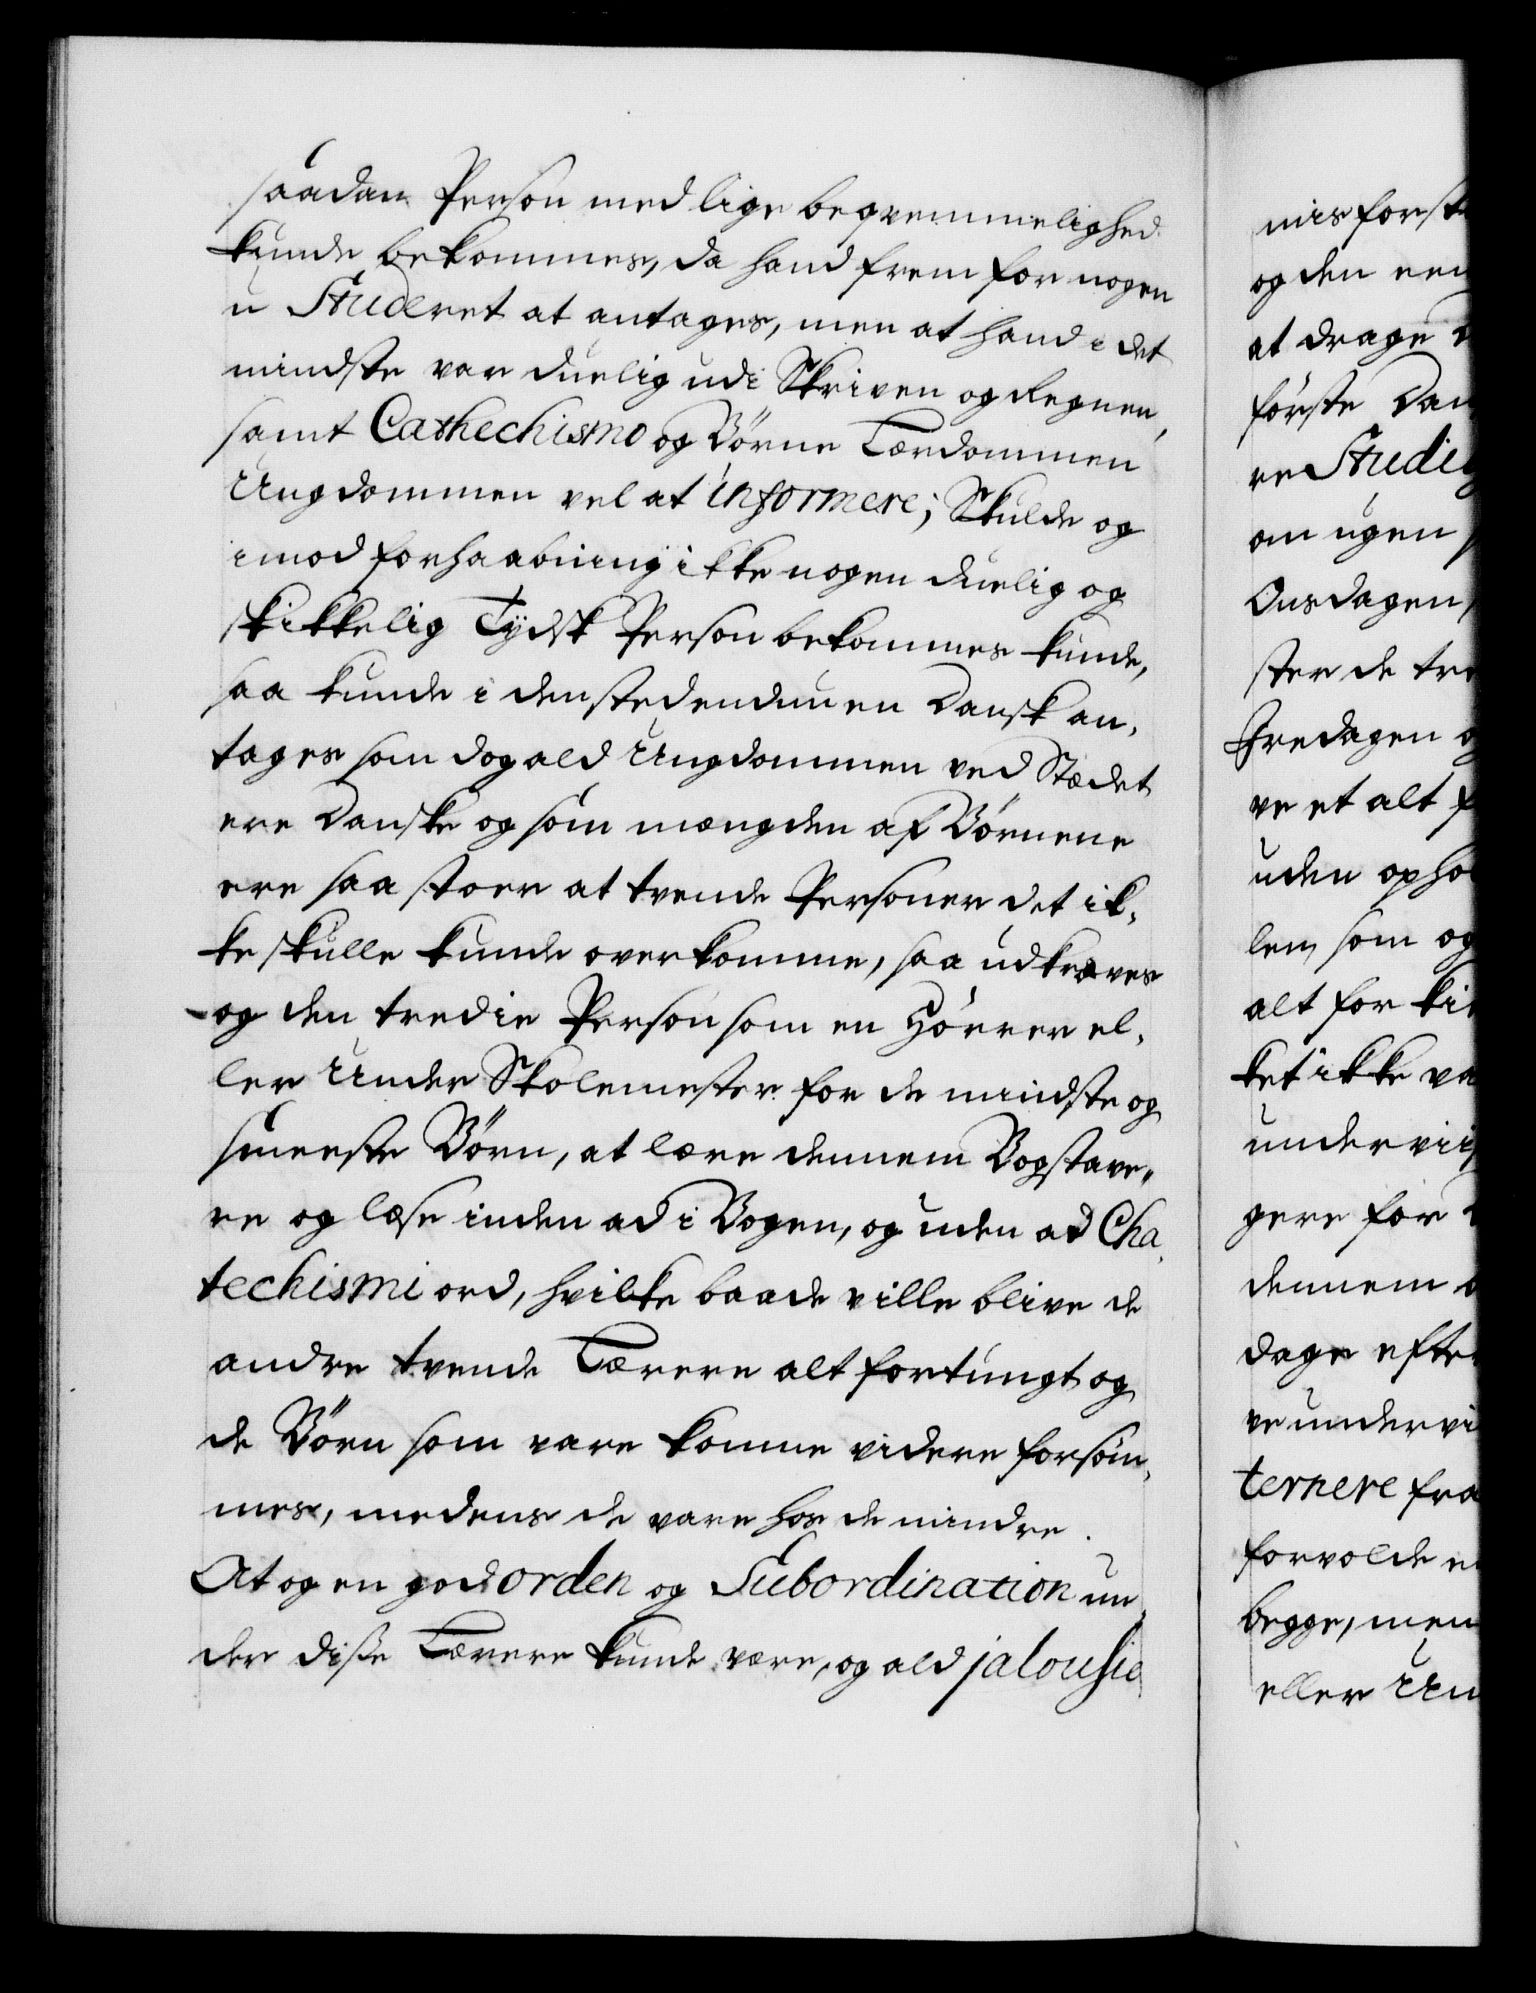 saadan Person med lige beqvemmelighed
kunde bekommes, da hand frem for nogen
u Studeret at antages, men at hand i det
mindste var duelig udi Skriven og Regnen,
samt Cathechismo og Börne Lærdommen
Ungdommen vel at informere; Skulde og
imod forhaabning ikke nogen duelig og
skikkelig Tydsk Person bekommes kunde,
saa kunde i den sted endnu en Dansk an,
tages som dog ald Ungdommen ved Stædet
ere Danske og som mængden af Börnene
ere saa stoer at tvende Personer det ik,
ke skulle kunde overkomme, saa udkræves
og den tredie Person som en Hörer el,
ler Under Skolemester for de mindste og
smerste Börn, at lære dennem Bogstave,
re og læse inden ad i Bogen, og uden ad Cha,
techismi ord, hvilke baade ville blive de
andre tvende Lærere alt for tungt og
de Börn som vare komne videre forsöm,
mes, medens de vare hos de mindre.
At og en god orden og Subordination un,
der disse Lærere kunde være, og ald jalousie
misforst
og den een
at drage
förste Dan
re Studi
om ugen
Onsdagen,
ster de tre
Fredagen o
ve et alt f
uden ophol
len, som og
alt for ki
ket ikke va
underviis
gere for
dennem
dage efter
ve undervi
ternere fra
forvolde
begge, men
eller Un